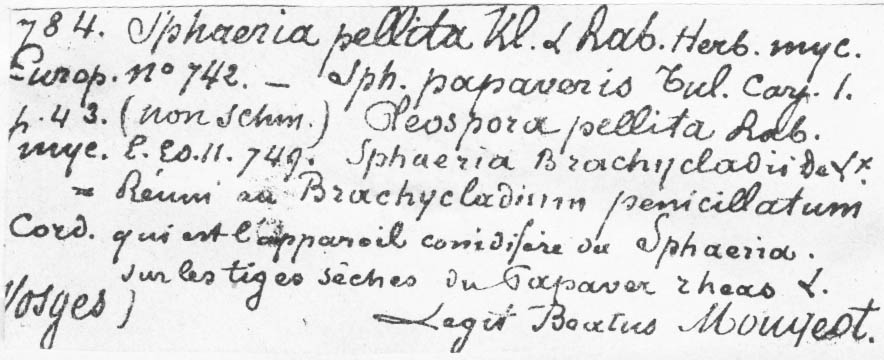 784. Sphaeria pellita Kl. & Rab. Herb. myc.
Europ. no 742. — Sph. papaveris Tul. Carp. 1.
p. 43. (non Schm.) Pleospora pellita Rab.
myc. E. Ed. II. 749. Sphaeria Brachycladii de Lx.
= Réuni au Brachycladium penicillatum
Cord. qui est l'appareil conidifère du Sphaeria.
sur les tiges sèches du Papaver rheas L.
Vosges) Legit Beatus Mougeot.